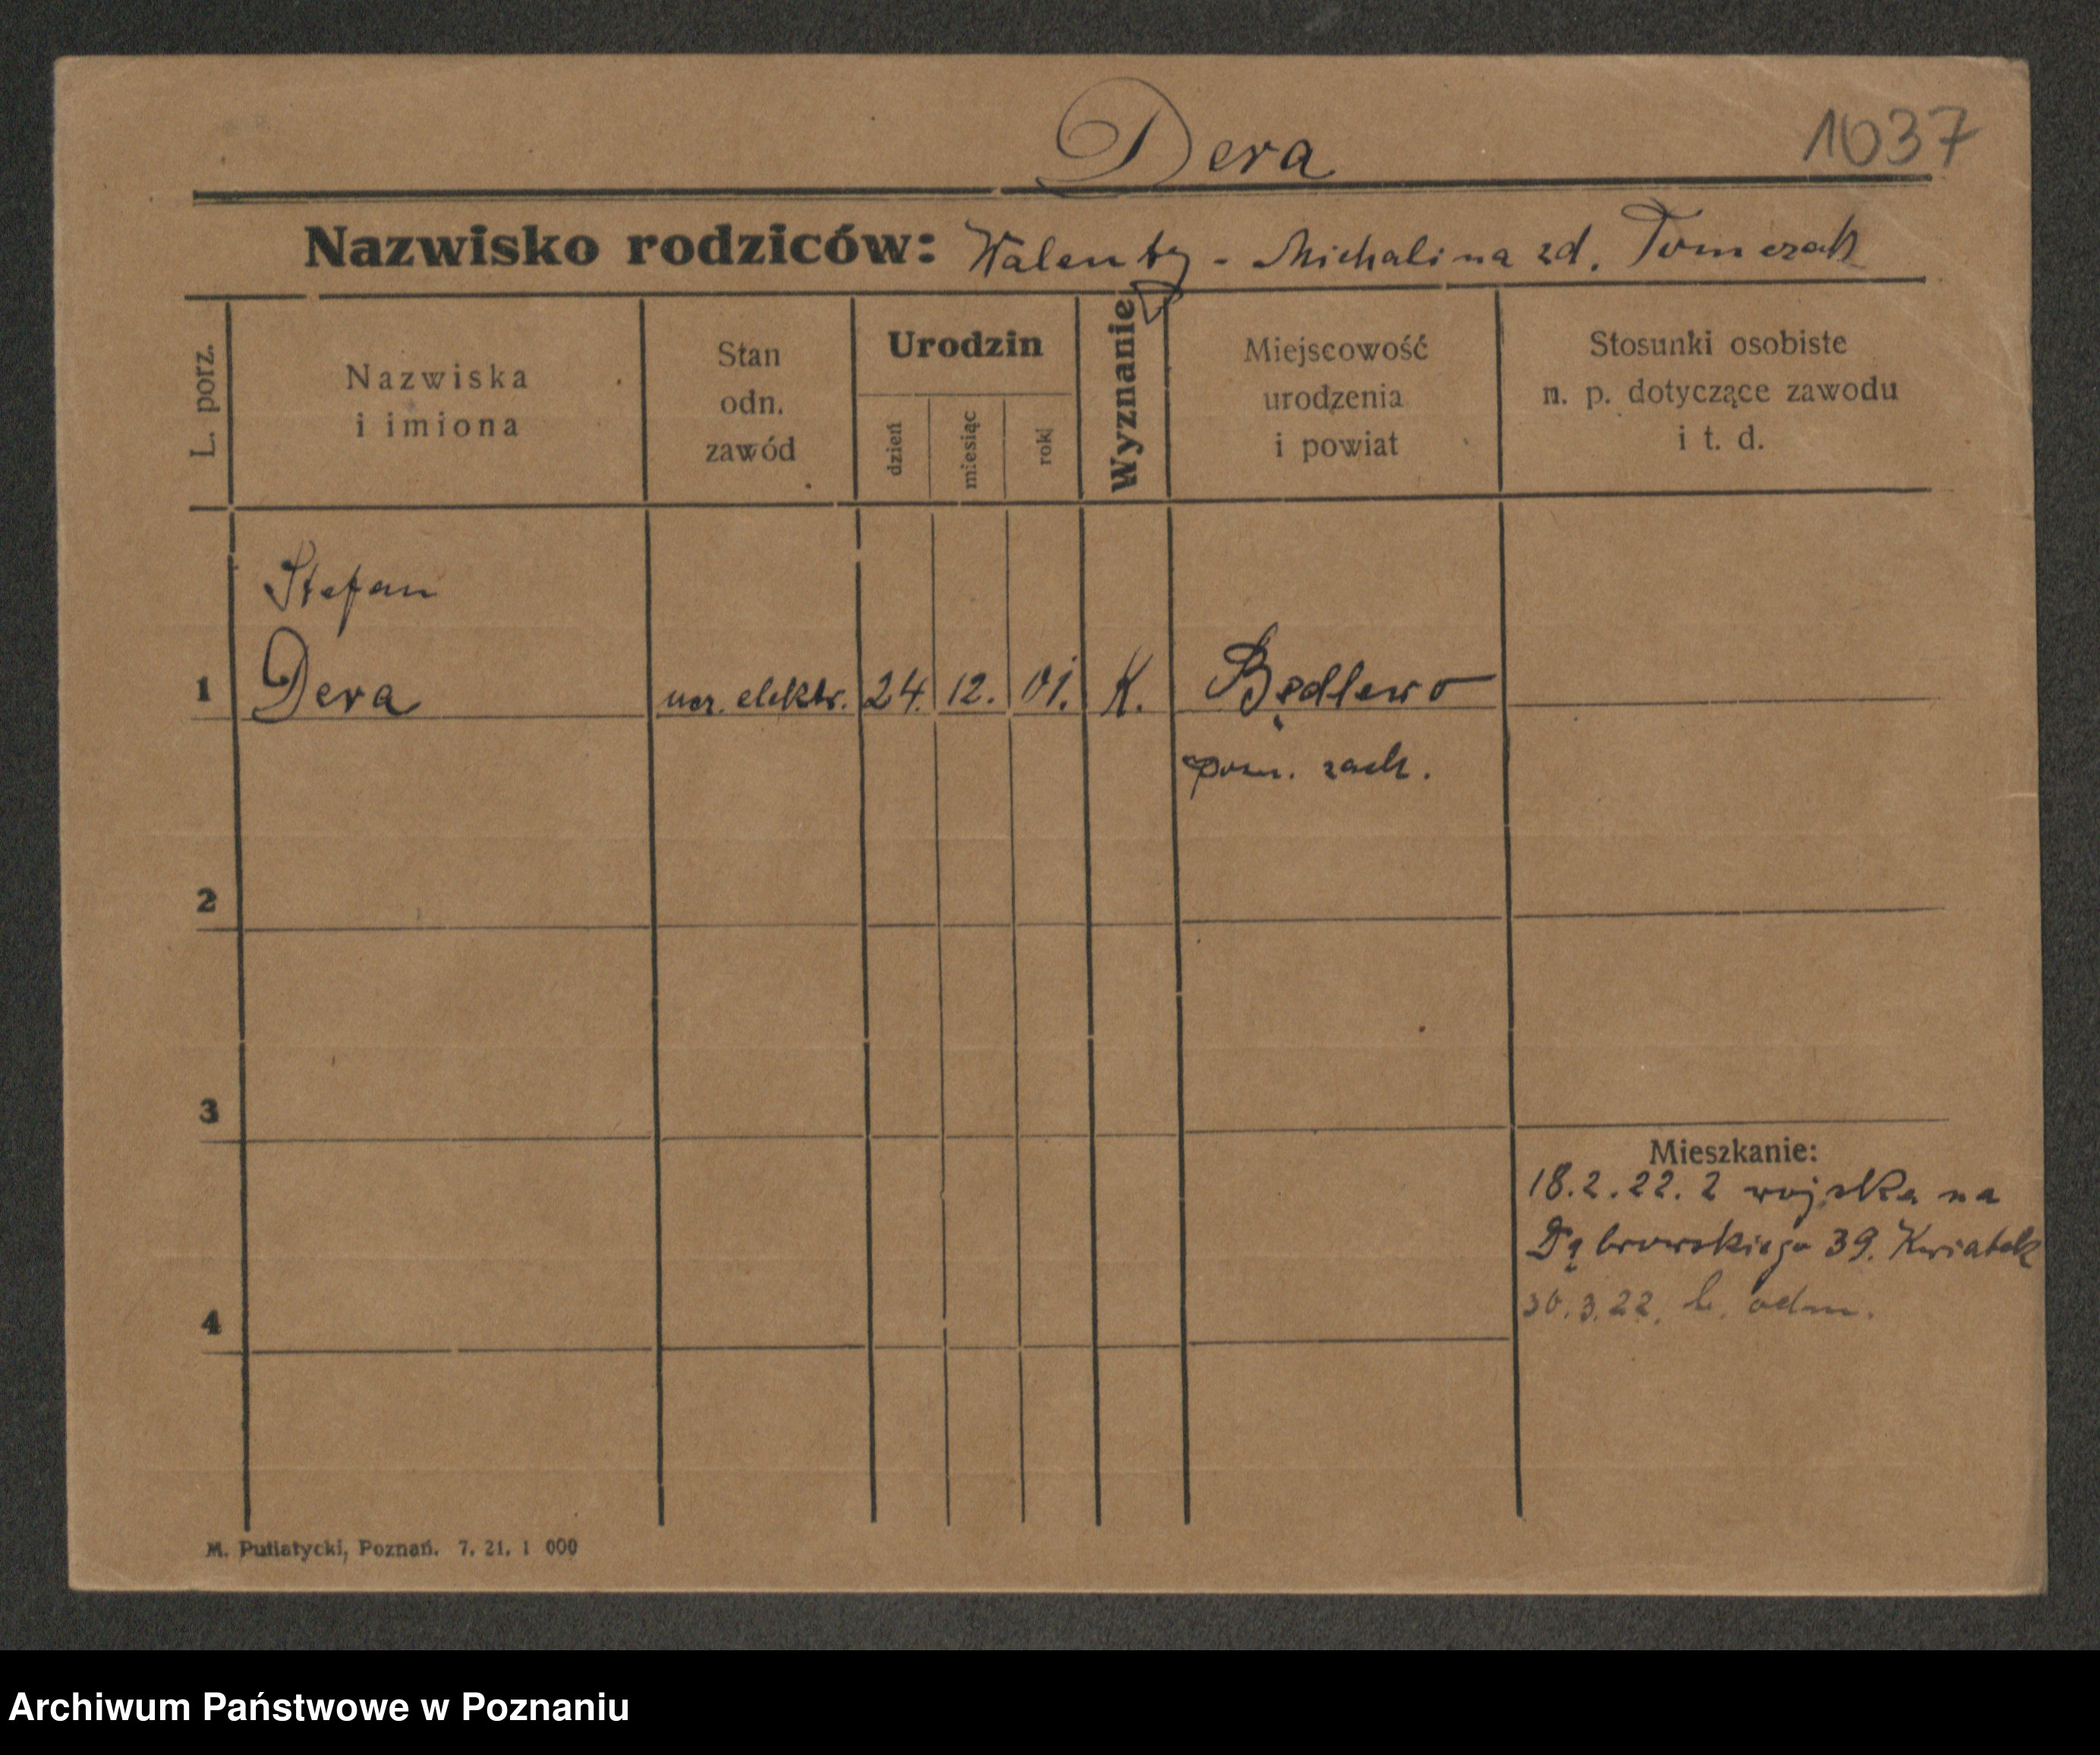 Dera
1037
Nazwisko rodziców: Walenty - Michalina zd. Tomczak
L. porz.
Nazwiska
i imiona
Stan
odn.
zawód
Urodzin
dzień
miesiąc
rok
Wyznanie
Miejscowość
urodzenia
i powiat
Stosunki osobiste
n. p. dotyczące zawodu
i t. d.
Stefan
1 Dera ucz. elektr. 24. 12. 01. K. Będlewo
pozn. zach.
2
3
Mieszkanie:
18.2.22. z wojska na
Dąbrowskiego 39. Kwiatek
30.3.22. b. odm.
4
M. Putiatycki, Poznań. 7. 21. 1 000
Archiwum Państwowe w Poznaniu